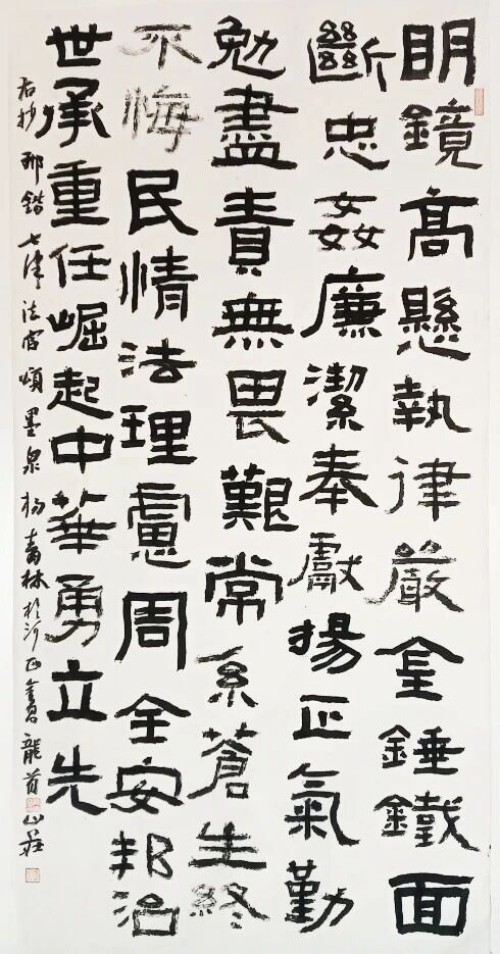 明鏡高懸執律嚴金錘鐵面
斷忠姦廉潔奉獻揚正氣勤
勉盡責無畏艱常系蒼生終
不悔民情法理慮周全安邦治
世承重任崛起中華勇立先
右抄邢錯七律法官頌墨泉楊青林於龍首山莊